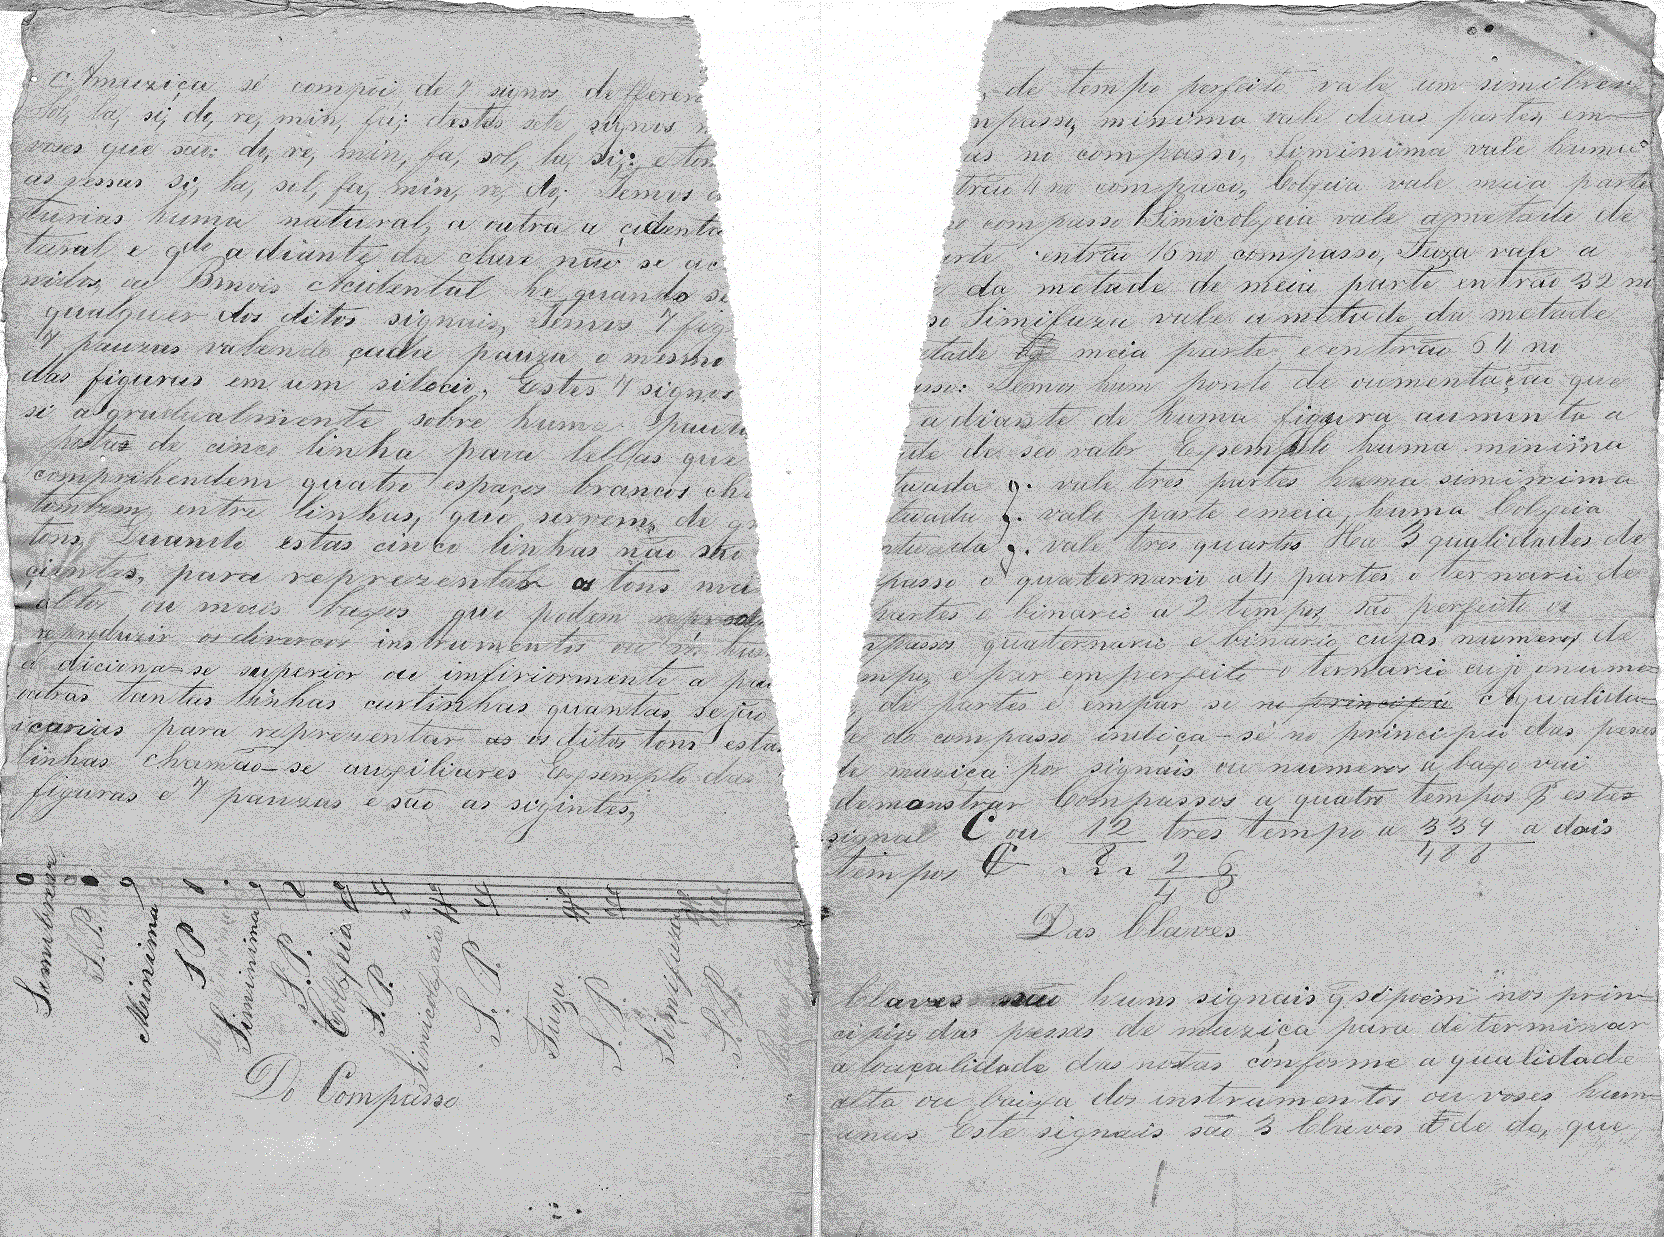 Amuziça sé compõi de 7 signos defferen
Sol, la, si, do, re, min, fá; destes sete signos n
voses que são: do, re, min, fa, sol, la, si; e ton
as pessas si, la, sol, fa, min, re, do; Temos
turias huma natural, a outra a cidenta
tural e qdo adiante da clave não se ac
nidos, ou Bmois Acidental he quando se
qualquer dos ditos signais, Temos 7 fig
7 pauzas valendo cada pauza o mesmo
das figuras em um silocio. Estes 7 signos
si a gradualmente sobre huma pauta
postas de cinco linha para bellas que
comprihendem quatro espaços brancos ch
tombem entre linhas, que servem de g
tons Quando estas cinco linhas não são
cientes, para reprezentar a tons mai
altos ou mais baxos que podem
reproduzir os divercos instrumentos ou vós hum
a diciona-se superior ou imfiriormente a pau
outras tantas linhas curtinhas quantas sejão
icarias para reprezentar as os ditos tons estas
linhas chamão-se auxiliares Exsemplo das
figuras e 7 pauzas e são as sigintes;
Semibreve
S.P.
Minima
SP
Siminima
S.P.
Colxeia
S.P.
Simicolxeia
S.P.
Fuza
S.P.
Simifuza
S.P.
Do Compasso
de tempo perfeito vale um simibreve
npasso, minima vale duas partes, em
as no compasso, Siminima vale huma
trão 4 no compaco, Colxeia vale meia parte
o compasso Simicolxeia vale ametade de
arte entrão 16 no compasso, Fuza vale a
da metade de meia parte entrão 32 no
so Simifuza vale a metade da metade
etade meia parte e entrão 64 no
asso: Temos hum ponto de aumentação que
adiante de huma figura aumenta a
ade de seo valor Exsemplo huma minima
tuada vale tres partes huma siminima
tuada vale parte e meia, huma Colxeia
ntuada vale tres quartos Ha 3 qualidades de
passo o quaternario a 4 partes o ternario de
partes e binario a 2 tempos, são perfeito os
npassos quaternario e binario cujas numeros de
mpos e par emperfeito o ternario cujo numo
de partes e empar se no principio A qualida
de do compasso indiça-sé no principio das pesas
de muzica por signais ou numeros a baxo vai
demonstrar Compassos a quatro tempos P estes
signal C ou 12/8 tres tempo a 3 3 9/4 8 8 a dois
tempos ₵ . 2. 2/4 6/8
Das Claves
Claves são huns signais q sipoem nos prin-
cipios das pessas de muziça para determinar
a louçalidade das notas conforme a qualidade
alta ou baixa dos instrumentos ou voses hum-
anas Este signais são 3 Claves de do, que